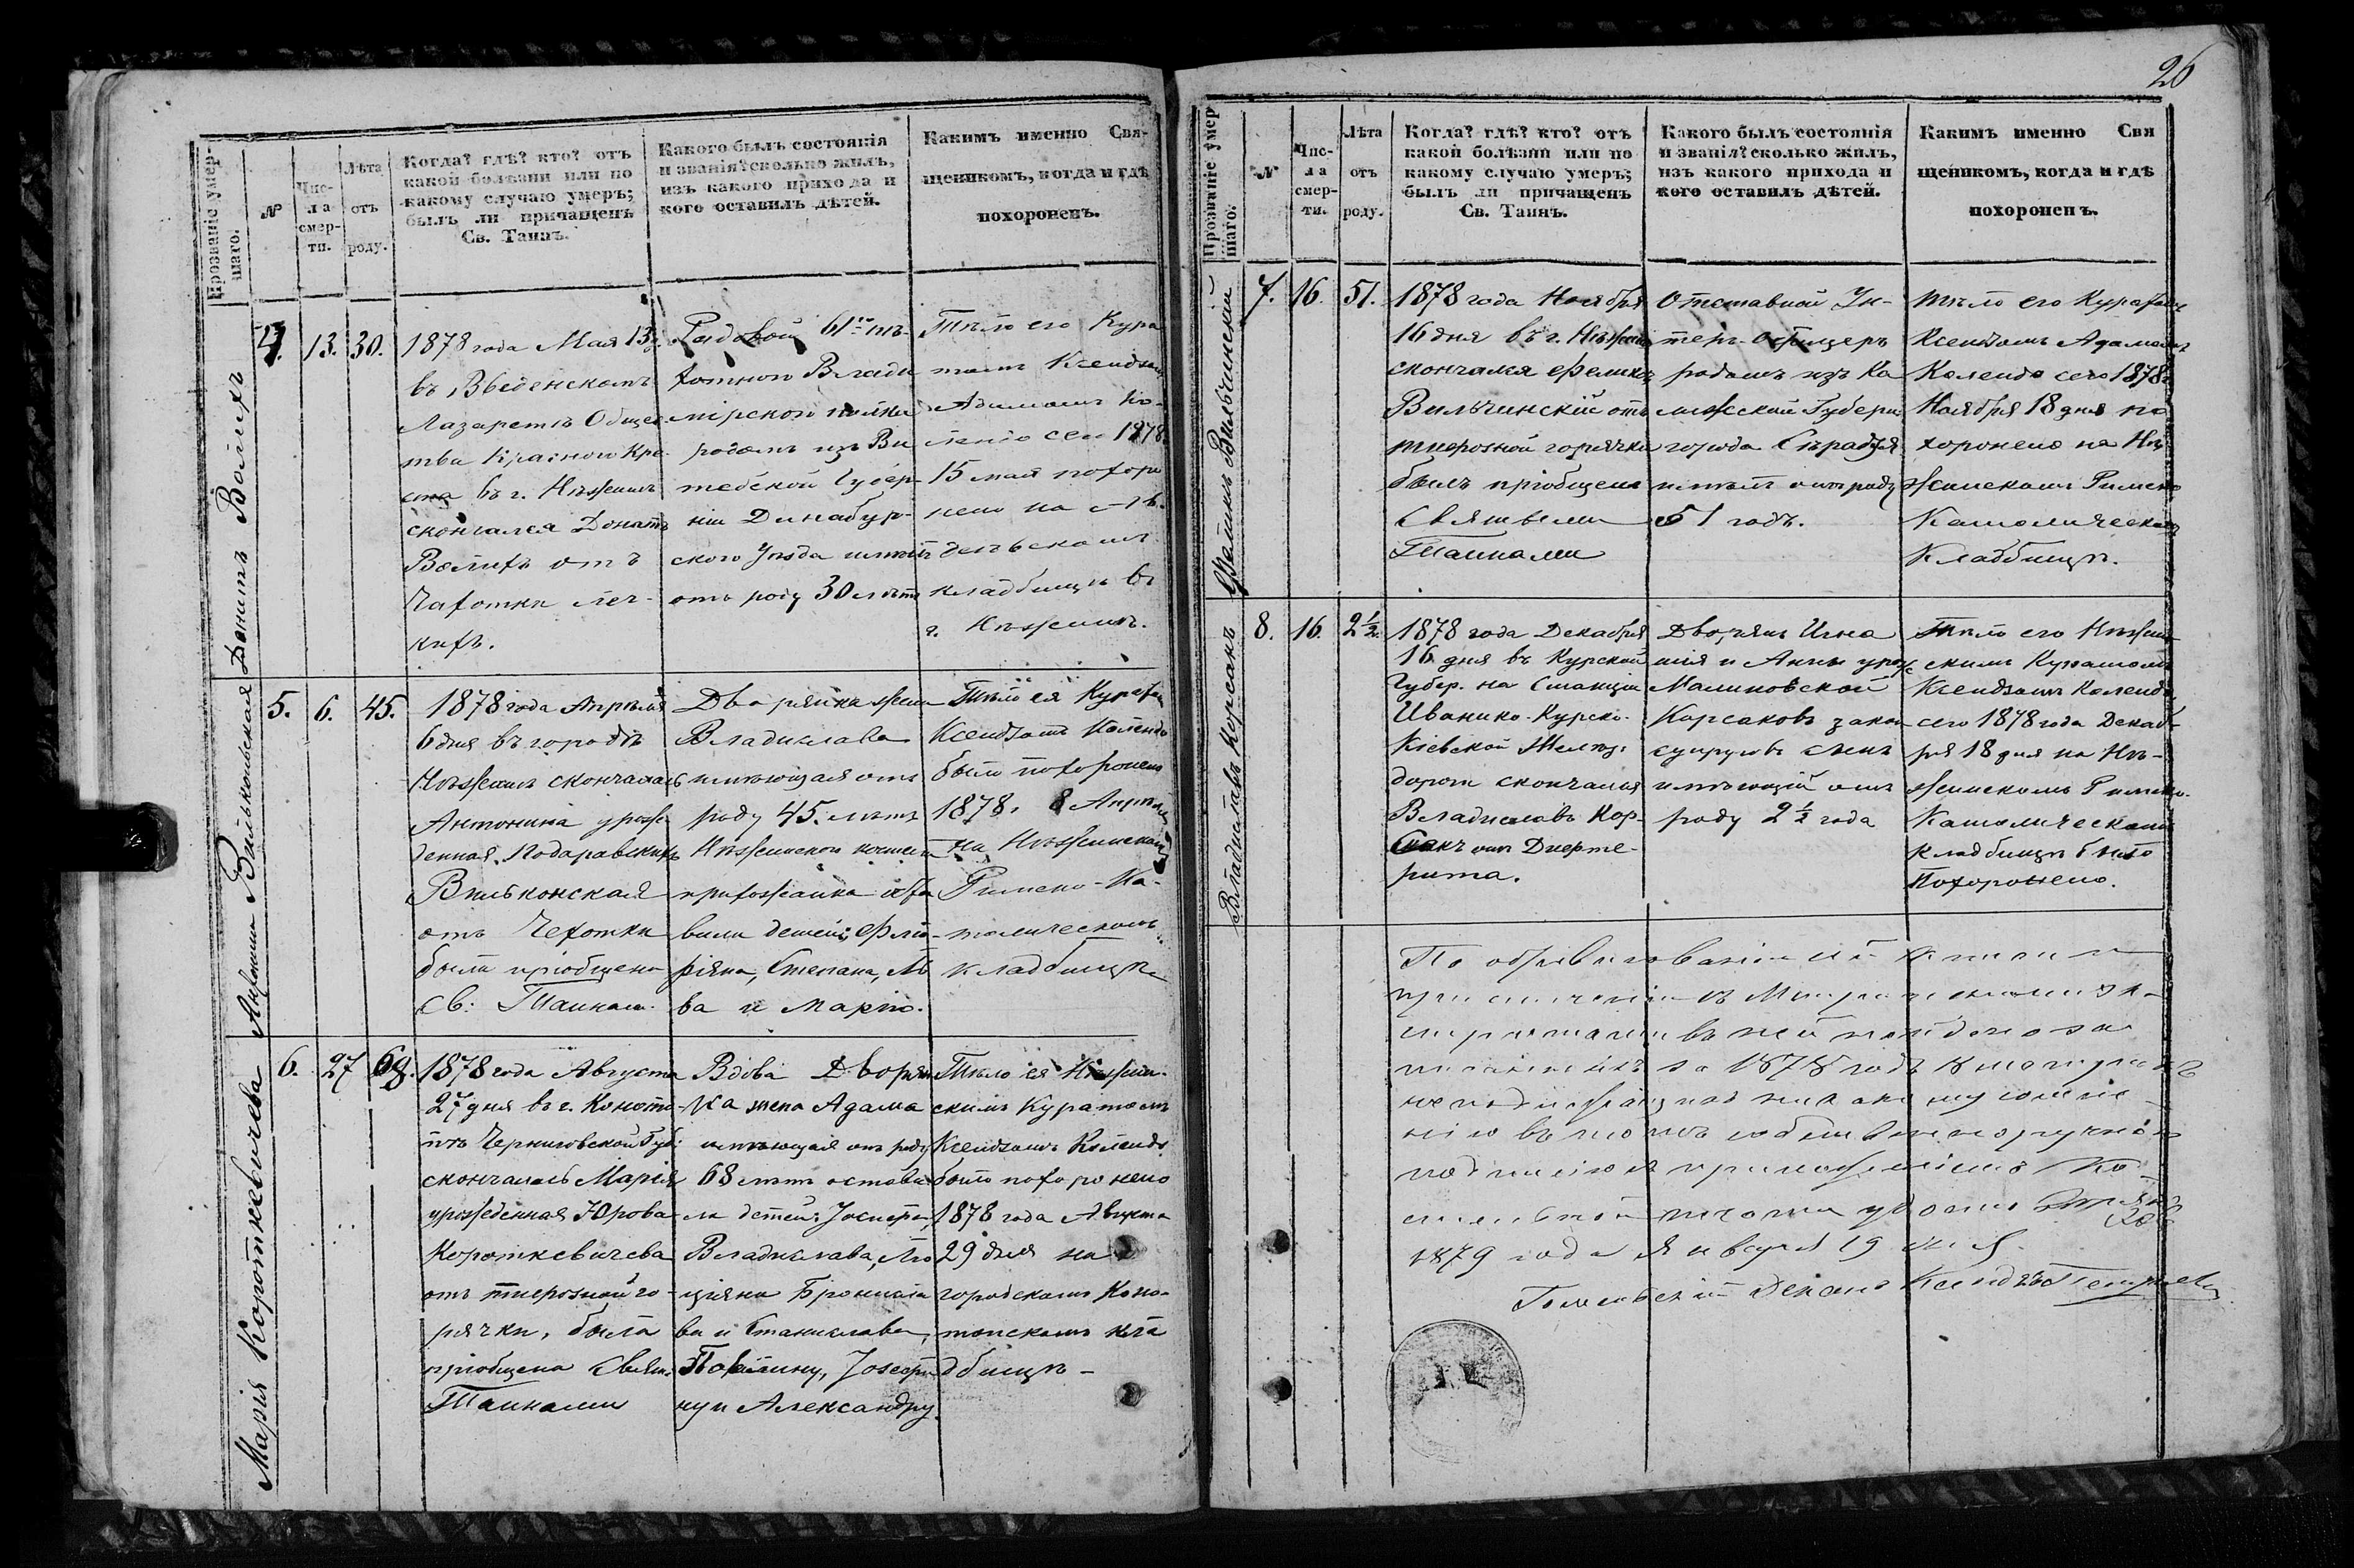 26
Прозваніе умер-
шаго.
№
Чис-
ла
смер-
ти.
Лѣта
отъ
роду.
Когда? гдѣ? кто? отъ
какой болѣзни или по
какому случаю умеръ;
былъ ли причащенъ
Св. Таинъ.
Какого былъ состоянія
и званія? сколько жилъ,
изъ какого прихода и
кого оставилъ дѣтей.
Какимъ именно Свя-
щеникомъ, когда и гдѣ
похороненъ.
Донатъ Валихъ
4.
13.
30.
1878 года Мая 13 д.
въ Введенскомъ
Лазаретѣ Общес
тва Краснаго Кре
ста въ г. Нѣжинѣ
скончался Донатъ
Валихъ отъ
Чахотки лег-
кихъ.
Рядовой 61го пѣ-
хотнаго Влади
мірскаго полка
родомъ изъ Ви
тебской Губер-
ніи Динабур-
скаго Уѣзда
отъ роду 30 лѣтъ
Тѣло его Кура
томъ Ксендзомъ
Адамомъ Ко-
лендо сего 1878
15 мая похоро
нено на
кладбищѣ въ
г. Нѣжинѣ.
Антонина Вильконская
5.
6.
45.
1878 года Апрѣля
6 дня въ городѣ
Нѣжинѣ скончалась
Антонина урож
денная
Вильконская
отъ Чахотки
была пріобщена
Св: Тайнам.
Дворянка жена
Владислава
имѣющая отъ
роду 45. лѣтъ
Нѣжинской
прихожанка оста
вила дѣтей: Фло-
ріяна, Степана, Ль
ва и Марію.
Тѣло ея Курато
Ксендзомъ Колендо
было похоронено
1878. 8 Апрѣля
на Нѣжинскомъ
Римско-Ка-
толическомъ
кладбищѣ
Марія Короткевичева
6.
27
68.
1878 года Августа
27 дня въ г. Коното-
пѣ Черниговской Губ:
скончалась Марія
урожденная Юрова
Короткевичева
отъ тифозной го-
рячки, была
пріобщена Свят.
Тайнами
Вдова Дворян
ка жена Адама
имѣющая отъ роду
68 лѣтъ остави
ла дѣтей: Іосифа,
Владислава, Лю
ціяна Бронисла
ва и Станислава,
Павлину, Іосефи
ну и Александру.
Тѣло ея Нѣжин-
скимъ Куратомъ
Ксендзомъ Колендо
было похоронено
1878 года Августа
29 дня на
городскомъ Коно-
топскомъ кла
дбищѣ -
Прозваніе умер
шаго.
№
Чис-
ла
смер-
ти.
Лѣта
отъ
роду.
Когда? гдѣ? кто? отъ
какой болѣзни или по
какому случаю умеръ;
былъ ли причащенъ
Св. Таинъ.
Какого былъ состоянія
и званія? сколько жилъ,
изъ какого прихода и
кого оставилъ дѣтей.
Какимъ именно Свя
щеникомъ, когда и гдѣ
похороненъ.
Вильчинскій
7.
16.
51.
1878 года Ноября
16 дня въ г. Нѣжинѣ
скончался Феликсъ
Вильчинскій отъ
тифозной горячки
былъ пріобщенъ
Святыми
Тайнами
Отставной Ун-
теръ-офицеръ
родомъ изъ Ка
лижской Губерн
города Сѣрадзя
имѣлъ отъ роду
51 годъ.
Тѣло его Куратомъ
Ксендзомъ Адамомъ
Колендо сего 1878 г.
Ноября 18 дня по
хоронено на Нѣ
жинскомъ Римско
Католическомъ
Кладбищѣ.
Владиславъ Корсакъ
8.
16.
2½.
1878 года Декабря
16 дня въ Курской
Губер. на Станціи
Иванино-Курско-
Кіевской Желѣз:
дороги скончался
Владиславъ Кор-
сакъ отъ Дифте-
рита.
Дворянъ Игна
тія и Анны урож
Малиновской
Корсаковъ закон
супруговъ сынъ
имѣющій отъ
роду 2½ года
Тѣло его Нѣжин-
скимъ Куратомъ
Ксендзомъ Колендо
сего 1878 года Декаб-
ря 18 дня на Нѣ-
жинскомъ Римско-
Католическомъ
кладбищѣ было
Похоронено.
По обревизованіи сей
въ ней найдено за
за 1878 годъ
въ томъ собственноручною
подписью и приложеніемъ Ко-
стельной печати удостовѣряю
1879 года Января 19 дня.
Гомельскій Деканъ Ксендзъ